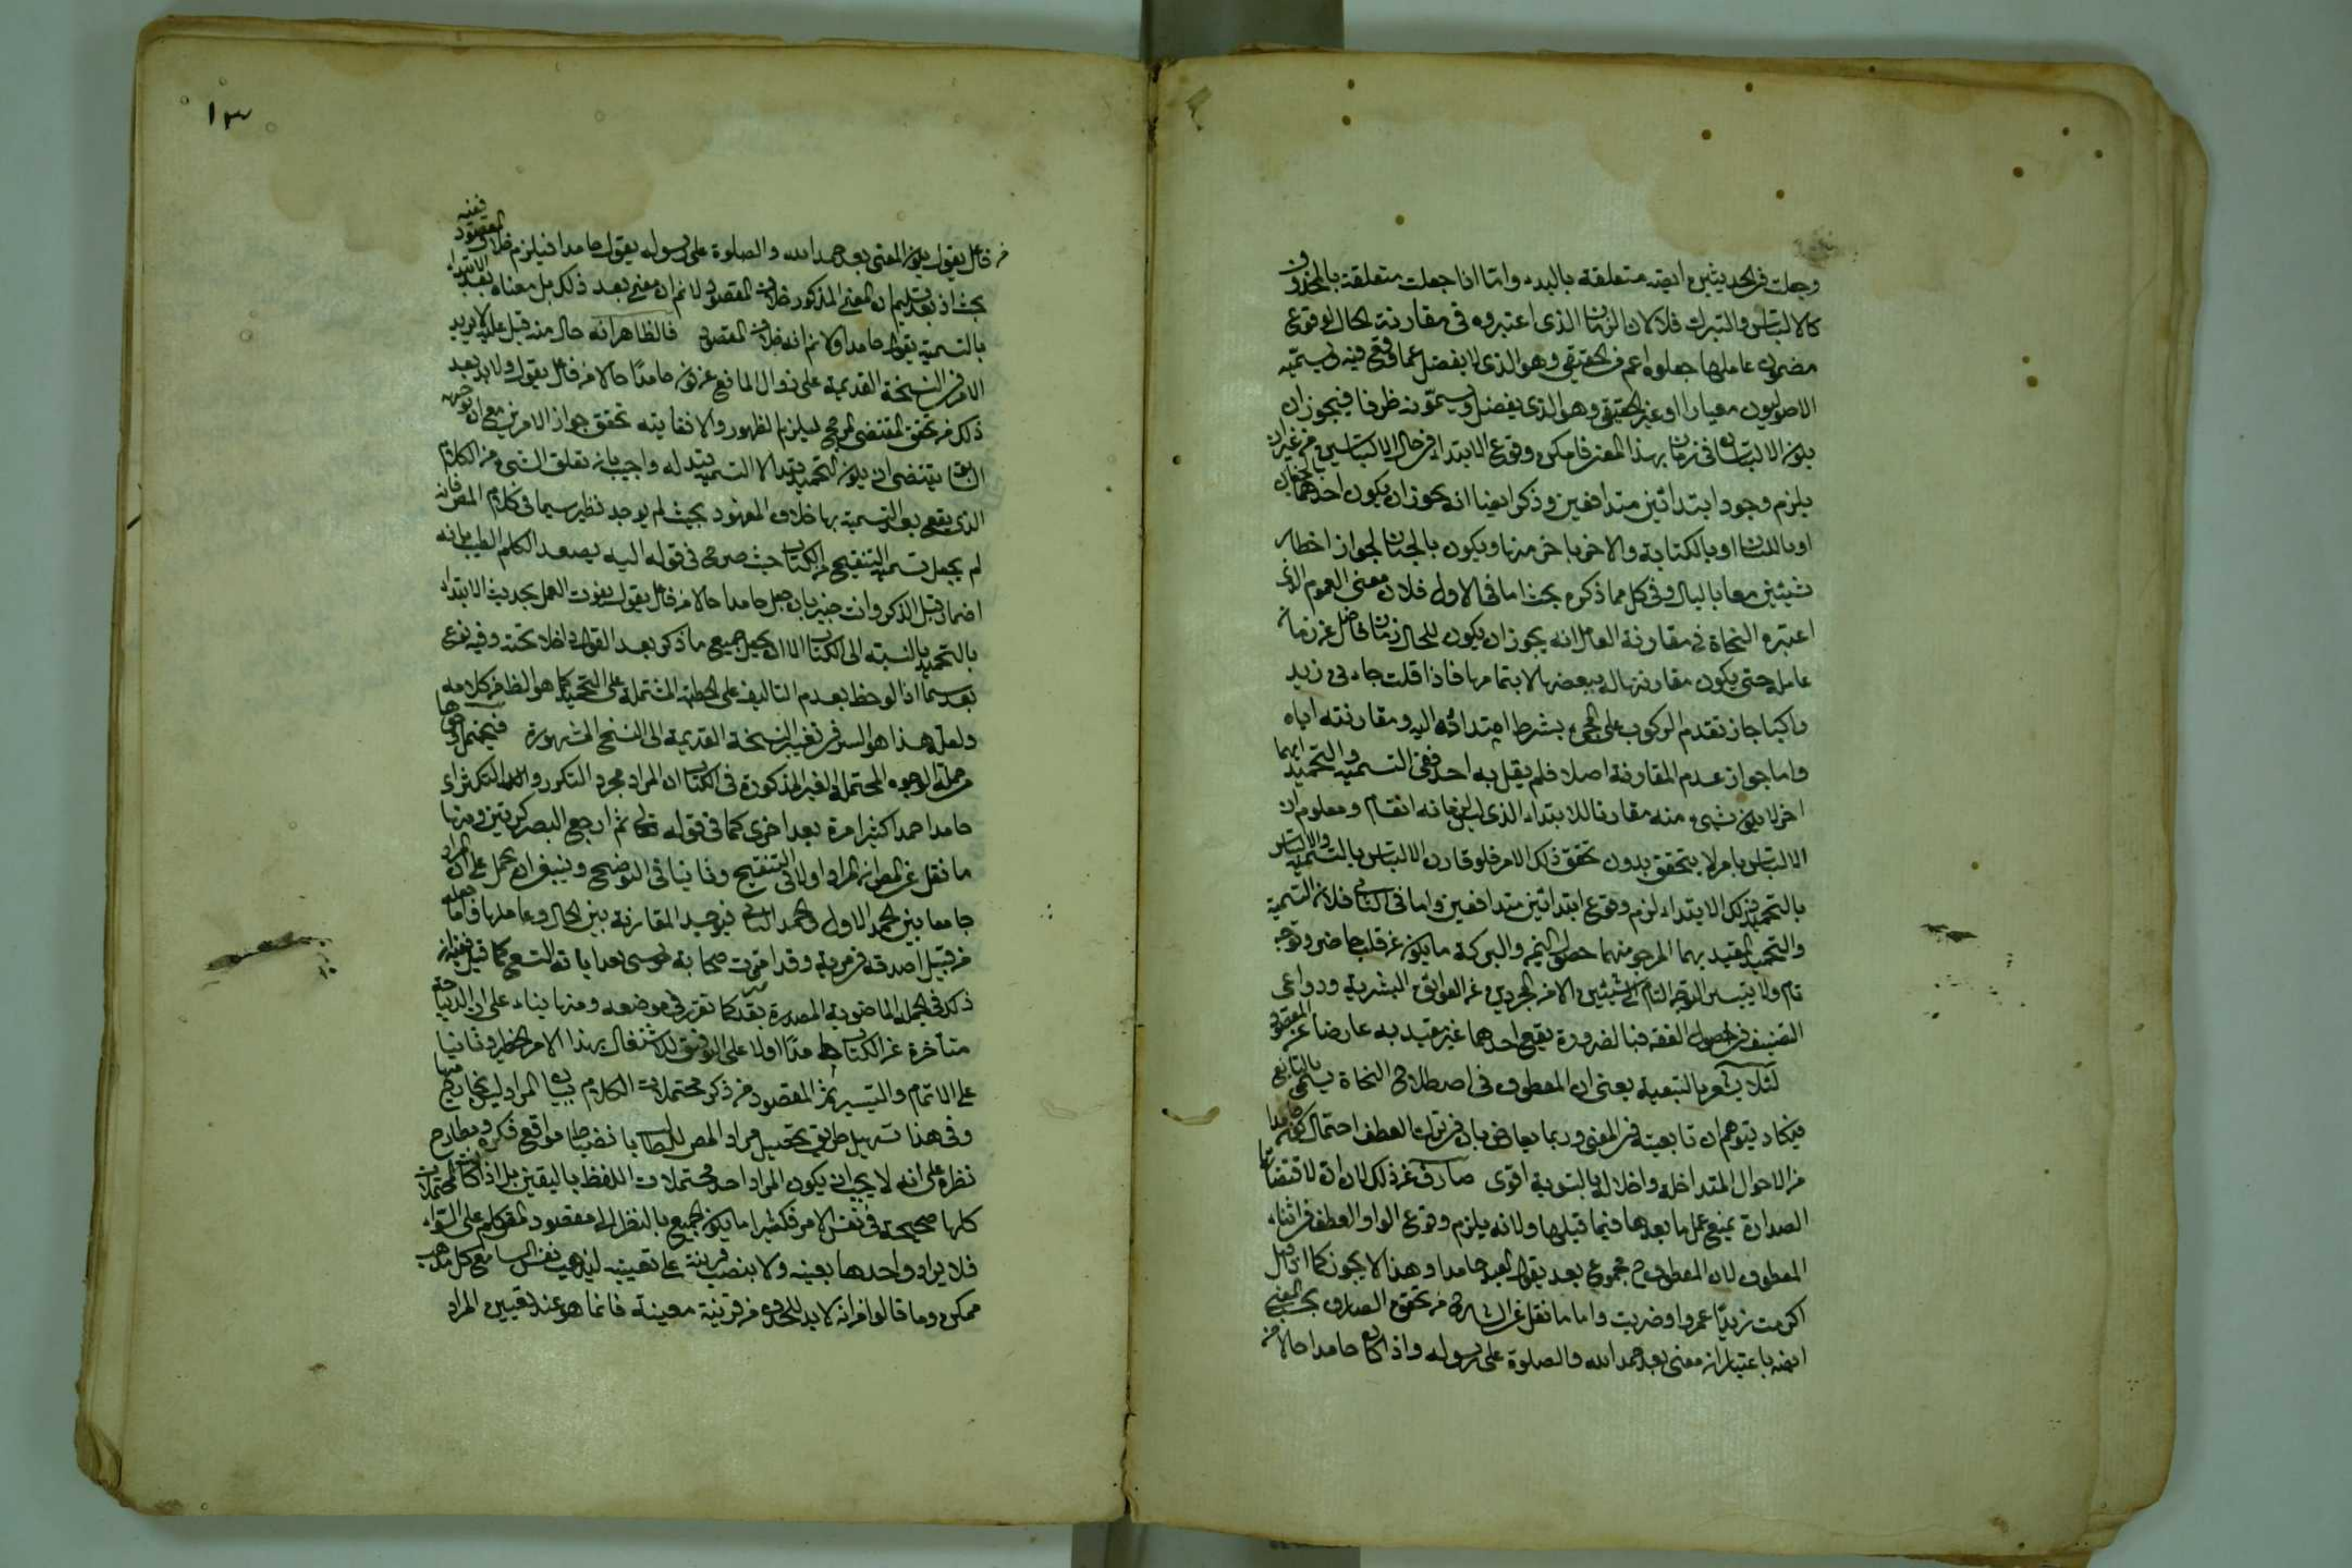 وجعلت في الحديثين ايضه متعلقة بالبدء واما اذا جعلت متعلقة بالمحذوف
كالالتباس والتبرك فلان الزمان الذى اعتبروه فى مقارنة الحال لوقوع
مضمون عاملها جعلوه اعم من الحقيقي وهو الذى لا يفضل عما وقع فيه ويسميه
الاصوليون معيارا او غير الحقيقي وهو الذى يفضل ويسمونه ظرفا فيجوز ان
يكون الالتباسان فى زمان بهذا المعنى فامكن وقوع الابتداء فى حال الالتباسين من غير ان
يلزم وجود ابتدائين متدافعين وذكر ايضا انه يجوز ان يكون احدهما بالجنان
او باللسان او بالكتابة والاخر باخر منها ويكون بالجنان لجواز اخطار
شيئين معا بالبال وفى كل مما ذكره بحث اما فى الاول فلان معنى العموم الذى
اعتبره النحاة فى مقارنة العامل انه يجوز ان يكون للحال زمان فاضل عن زمان
عامله حتى يكون مقارنتها له ببعضها لا بتمامها فاذا قلت جاءنى زيد
راكبا جاز تقدم الركوب على المجىء بشرط امتدائه اليه ومقارنته اياه
واما جواز عدم المقارنة اصلا فلم يقل به احد ففى التسمية والتحميد ايهما
اخر لا يكون شىء منه مقارنا للابتداء الذى ليس زمانه انقسام ومعلوم ان
الالتباس بامر لا يتحقق بدون تحقق ذلك الامر فلو قارن الالتباس بالتسمية والالتباس
بالتحميد ذلك الابتداء لزم وقوع ابتدائين متدافعين واما فى الثانى فلان التسمية
والتحميد المقيد بهما المرجو منهما حصول اليمن والبركة ما يكون عن قلب حاضر وتوجه
تام ولا يتيسر التوجه التام الى شيئين الا من المجردين عن العوائق البشرية ودواعى
التصنيف فى اصول الفقه فبالضرورة يقع احدهما غير مقيد به عارضا عن المقصود
لئلا يشعر بالتبعية يعنى ان المعطوف فى اصطلاح النحاة يسمى بالتابع
فيكاد يتوهم ان تابعيته فى المعنى وربما يعارض بان فى ترك العطف احتمال كونه حامدا
من الاحوال المتداخلة واخلاله بالتسوية اقوى صارف عن ذلك لان ان لاقتضائها
الصدارة يمنع عمل ما بعدها فيما قبلها ولانه يلزم وقوع الواو العطف فى اثناء
المعطوف لان المعطوف ح مجموع بعد يقول العبد حامدا وهذا لا يجوز كما ان قيل
اكرمت زيدا عمروا وضربت واما ما نقل عن الشارح من تحقق الصارف بحسب المعنى
ايضه باعتبار ان معنى بعد حمد الله والصلوة على رسوله واذا كان حامدا حالا من
١٣
من فاعل يقول يكون المعنى بعد حمد الله والصلوة على رسوله يقول حامدا فيلزم خلاف المقصود ففيه
بحث اذ بعد تسليم ان المعنى المذكور خلاف المقصود لا نم ان معنى بعد ذلك بل معناه بعد الابتداء
بالتسمية يقول حامدا ولا نم انه خلاف المقصود فالظاهر انه حال منه قبل عليه لا يزيد
الامر فى النسخة القديمة على زوال المانع عن كون حامدا حالا من فاعل يقول ولا بد بعد
ذلك من تحقق المقتضى المرجح ليلزم الظهور والا فغايته تحقق جواز الامرين مع ان توجيه
السابق يقتضى ان يكون التحميد يقيد الا التسمية يقيد له واجيب بان تعلق الشىء من الكلام
الذى يقع بعد التسمية بها خلاف المعهود بحيث لم يوجد نظيره سيما فى كلام المص فانه
لم يجعل تسمية التنقيح من الكتاب حيث صرح فى قوله اليه يصعد الكلم الطيب بانه
اضمار قبل الذكر وانت خبير بان جعل حامدا حالا من فاعل يقول يفوت العمل بحديث الابتداء
بالتحميد بالنسبة الى الكتاب الا ان يجعل جميع ما ذكر بعد القول داخلا تحته وفيه نوع
بعد سيما اذا لوحظ بعدم التاليف على الخطبة المشتملة على التحميد كما هو الظ من كلامه
ولعل هذا هو السر فى تغيير النسخة القديمة الى النسخ المشهورة فيحتمل وجوها
من جملة الوجوه المحتملة الغير المذكورة فى الكتاب ان المراد مجرد التكرر والتكثر اى
حامدا حمدا كثيرا مرة بعد اخرى كما فى قوله تعالى ثم ارجع البصر كرتين ومنها
ما نقل عن المص انه اراد اولا فى التنقيح وثانيا فى التوضيح وينبغى ان يحمل على ان المراد
جامعا بين الحمد الاول والحمد الثانى فيوجد المقارنة بين الحال وعاملها واما جعله
من قبيل اصدقه فى مرية وقد امترت صحابة موسى بعد اياته التسع كما قيل فيه ان
ذلك فى الجملة الماضوية المصدرة بقد كما تقرر فى موضعه ومنها بناء على ان الديباجة
متاخرة عن الكتاب حامدا اولا على التوفيق للاشتغال بهذا الامر الخطير وثانيا
على الاتمام والتيسير ثم المقصود من ذكر محتملات الكلام بيان المراد ليس بخارج منها
وفى هذا تسهيل طريق تحصيل مراد المص للطالب بانضباط مواقع فكره ومطارح
نظره على انه لا يجب ان يكون المراد احد محتملات اللفظ باليقين بل اذا كان المحتملات
كلها صحيحة فى نفس الامر فكثيرا ما يكون الجميع بالنظر الى مقصود المتكلم على السواء
فلا يراد واحدها بعينه ولا بنصب قرينة على تعيينه ليذهب نفس السامع كل مذهب
ممكن وما قالوا من انه لا بد للحذف من قرينة معينة فانما هو عند تعيين المراد